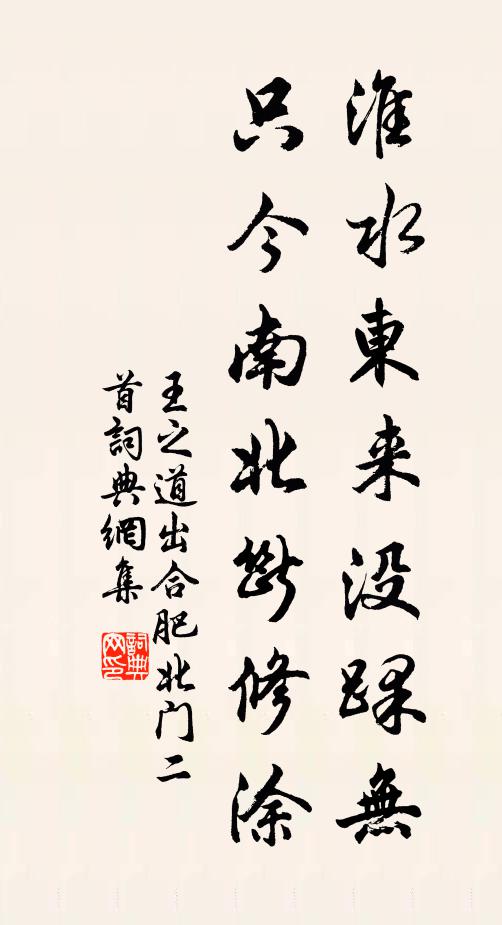 淮水東来没踝無
只今南北斷修涂
王之道出合肥北门二
首詞典網集
詞典网印